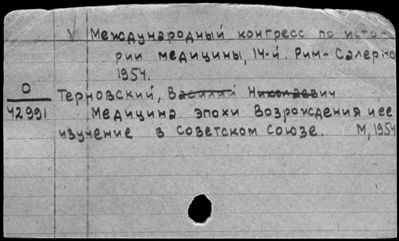 V Международный конгресс по исто-
рии медицины, 14-й. Рим-Салерно
1954.
О
42991
Терновский, Василий Николаевич
Медицина эпохи Возрождения и ее
изучение в Советском Союзе. М, 1954